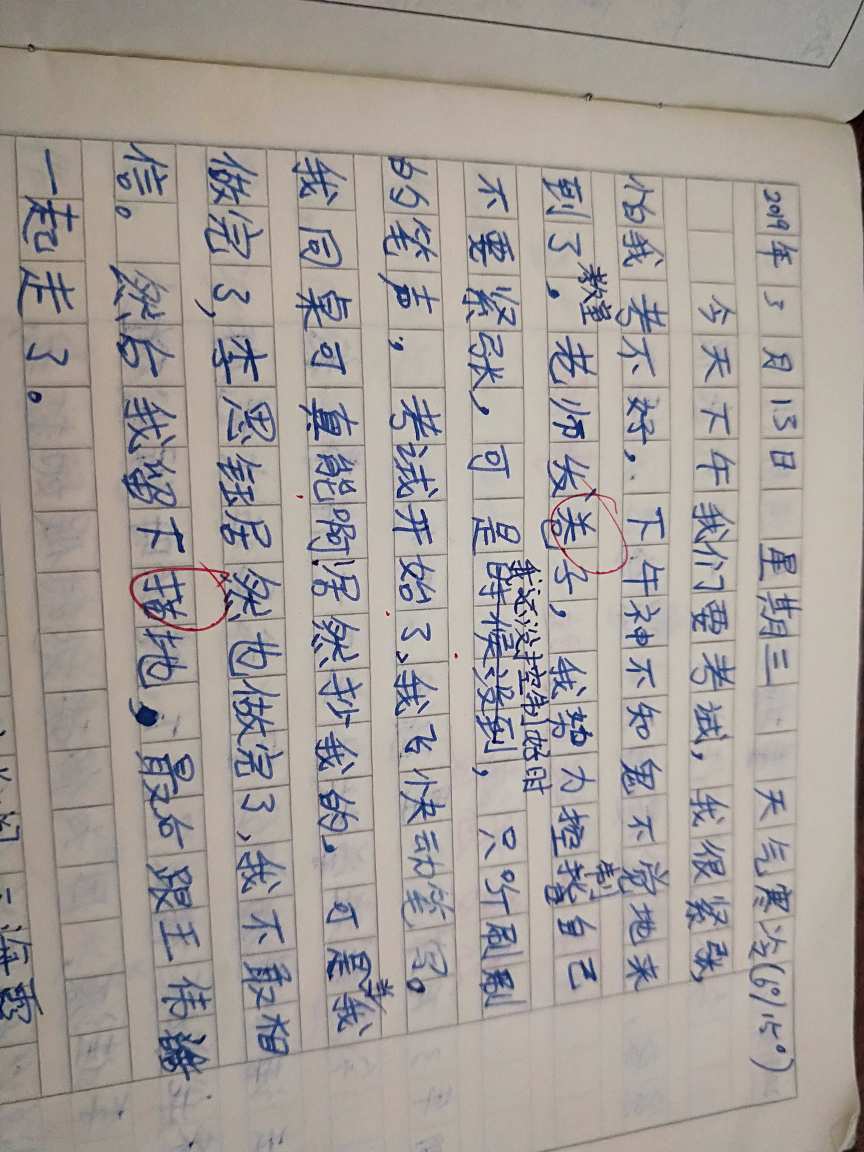 2019年3月13日 星期三 天气寒冷(6°/15°)
今天下午我们要考试，我很紧张，
怕我考不好。下午神不知鬼不觉地来
到了。教室老师发卷子，我努力控制自己
不要紧张，可是我还没控制好时，只听刷刷
的笔声，考试开始了、我飞快动笔写。
我同桌可真能啊居然抄我的。可是我
做完了，李思钰居然也做完了、我不敢相
信。然后我留下扫地，最后跟王伟
一起走了。